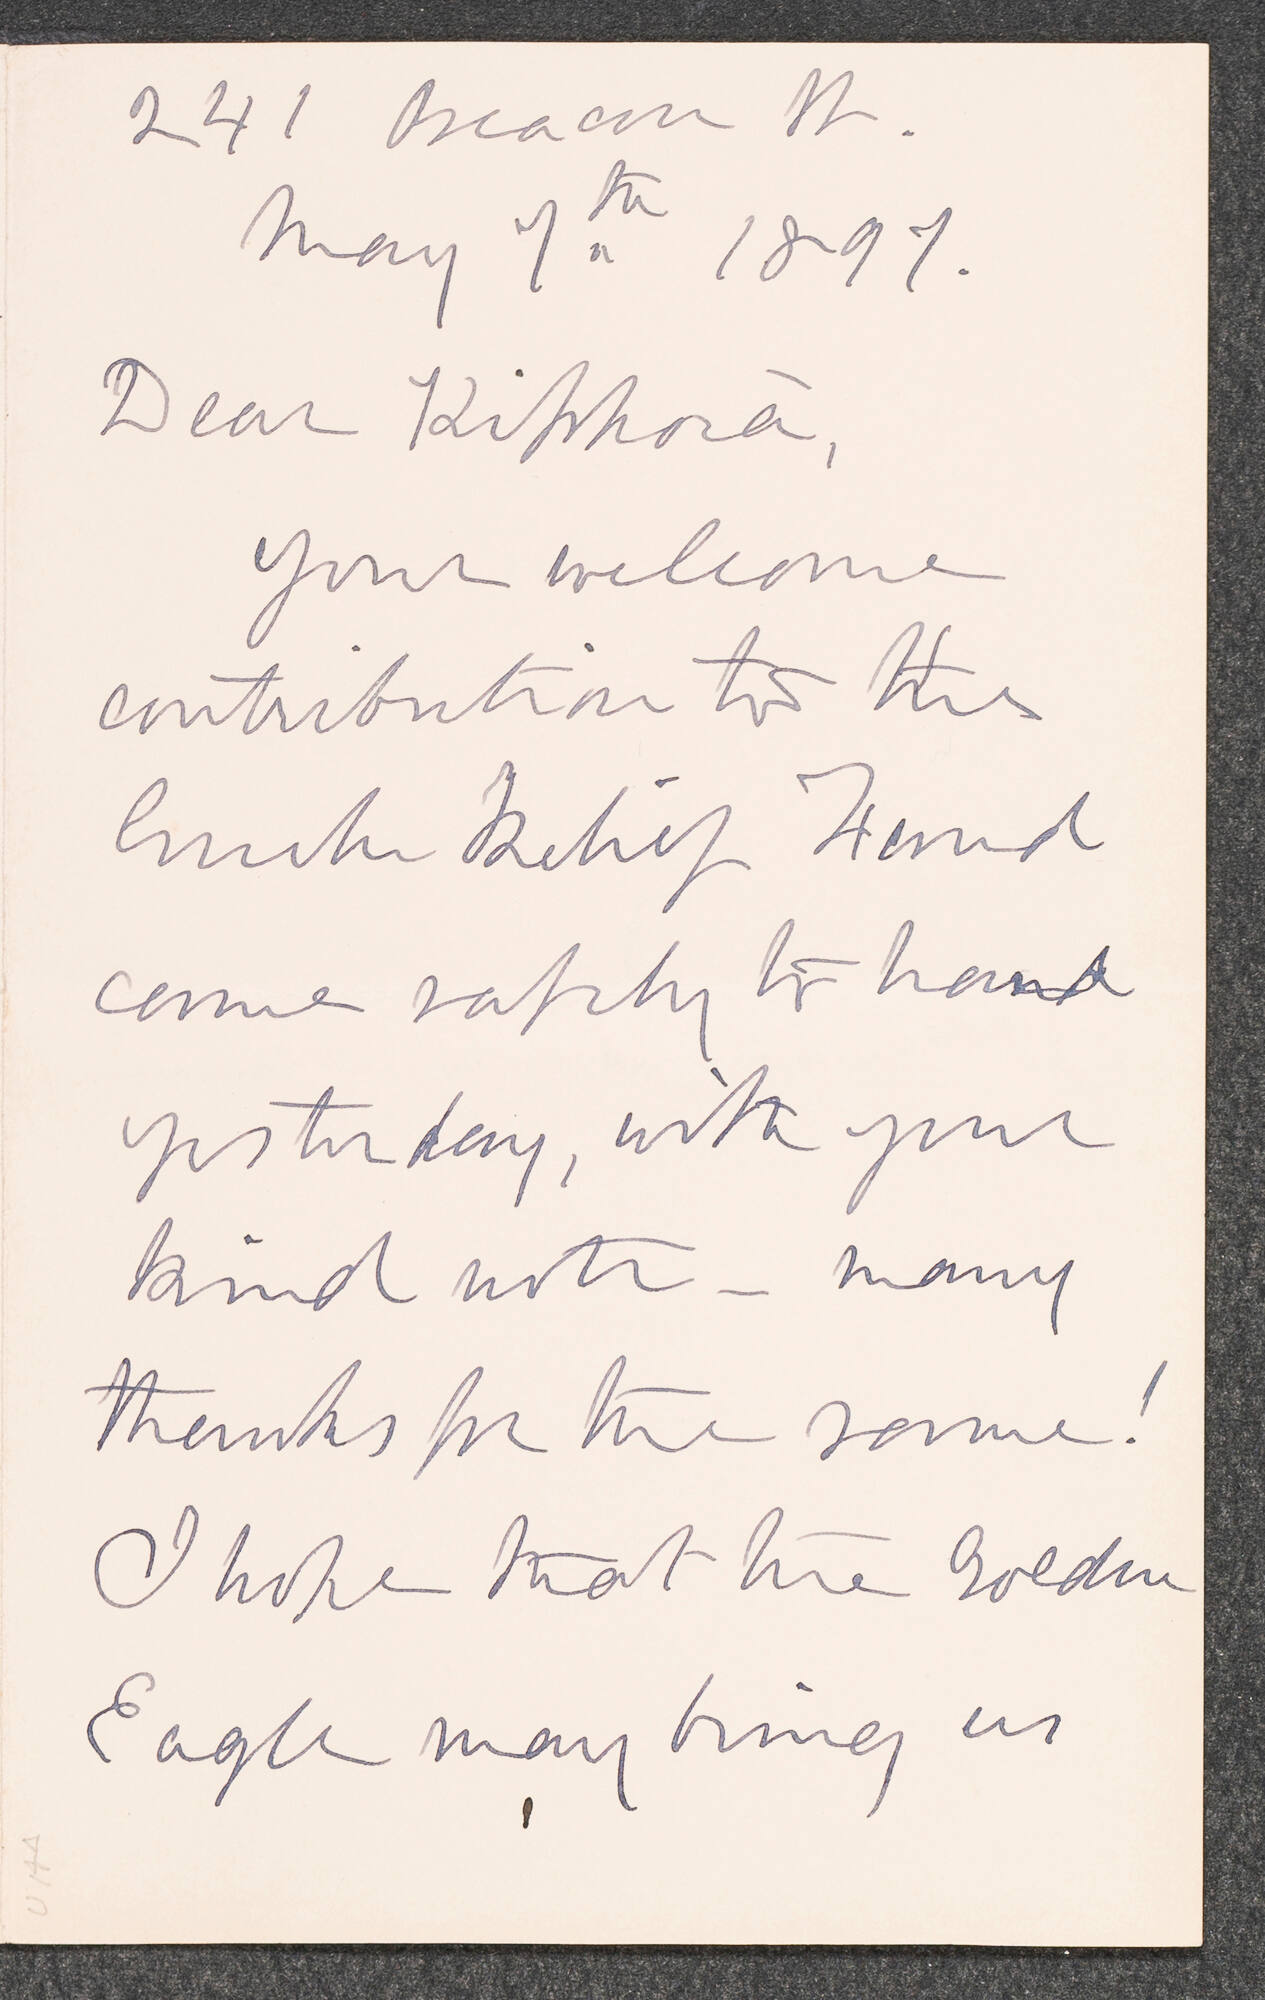 241 Beacon St.
May 7th 1897.
Dear Kipphora,
your welcome
contribution to the
Greek Relief Fund
came safely to hand
yesterday, with your
kind note – many
thanks for the same!
I hope that the Golden
Eagle may bring us